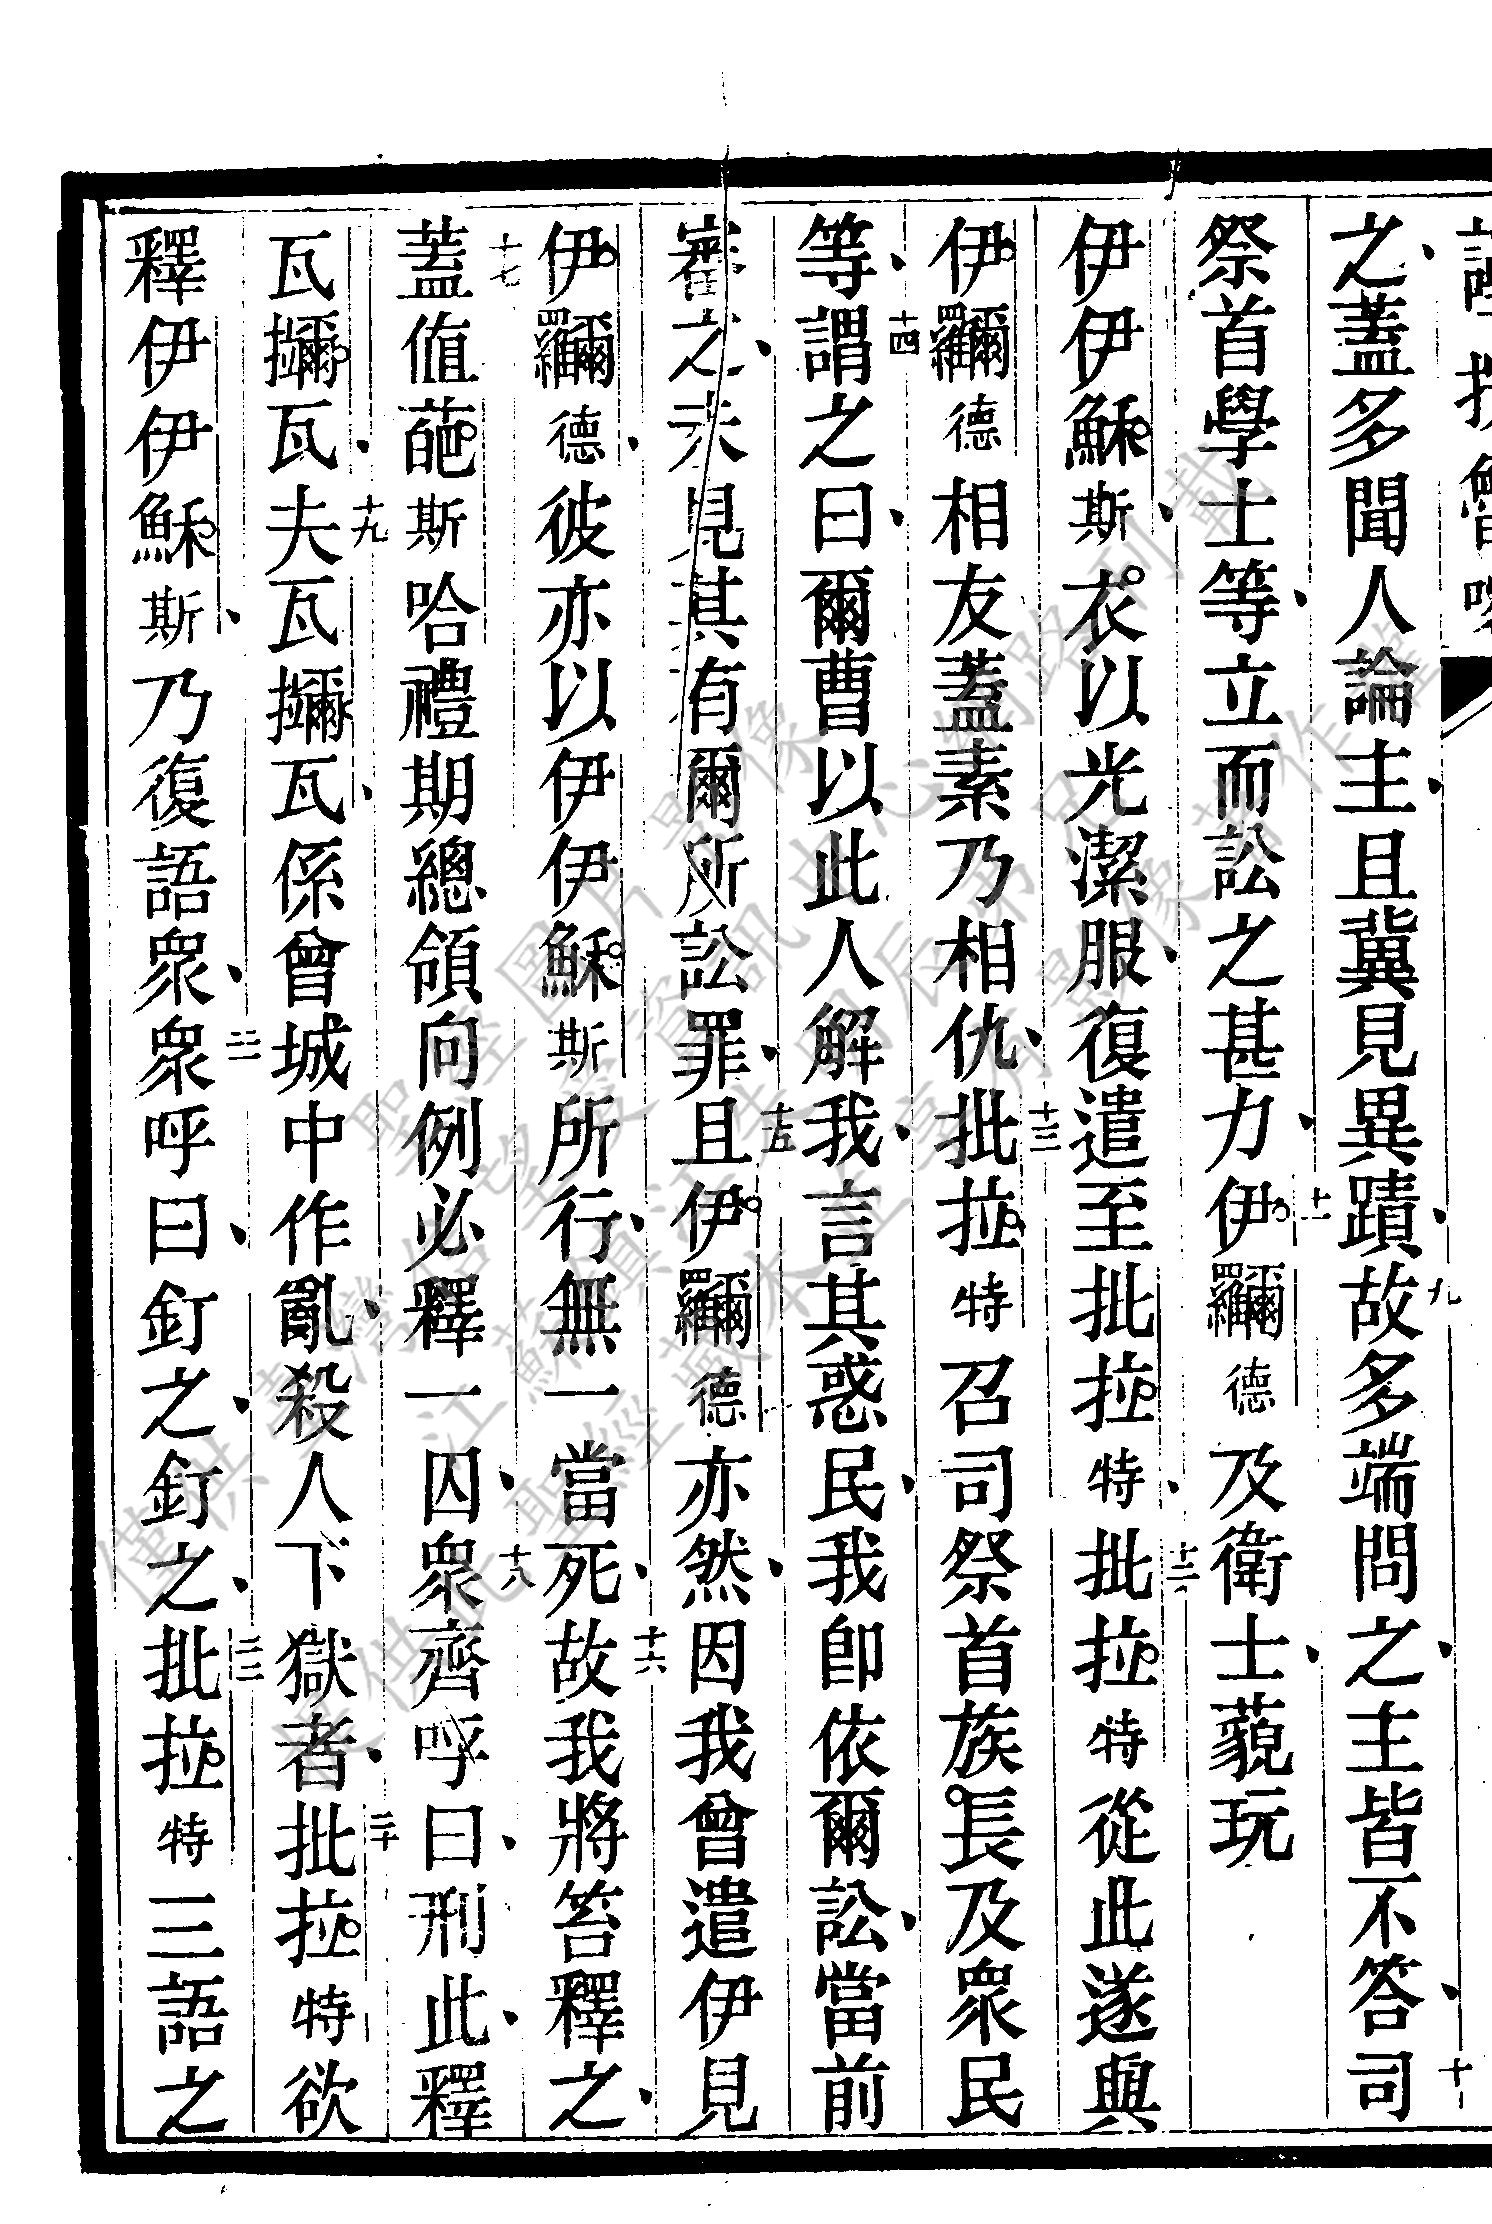 之蓋多聞人論主且冀見異蹟九故多端問之主皆不答十司
祭首學士等立而訟之甚力十一伊羅爾德及衛士藐玩
伊伊穌斯衣以光潔服復遣至批拉特十二批拉特從此遂與
伊羅爾德相友蓋素乃相仇十三批拉特召司祭首族長及衆民
等十四謂之曰爾曹以此人解我言其惑民我卽依爾訟當前
審之未見其有爾所訟罪十五且伊羅爾德亦然因我曾遣伊見
伊羅爾德彼亦以伊伊穌斯所行無一當死十六故我將笞釋之
十七蓋値葩斯哈禮期總領向例必釋一囚十八衆齊呼曰刑此釋
瓦擱瓦夫十九瓦擱瓦係曾城中作亂殺人下獄者二十批拉特欲
釋伊伊穌斯乃復語衆二一衆呼曰釘之釘之二二批拉特三語之